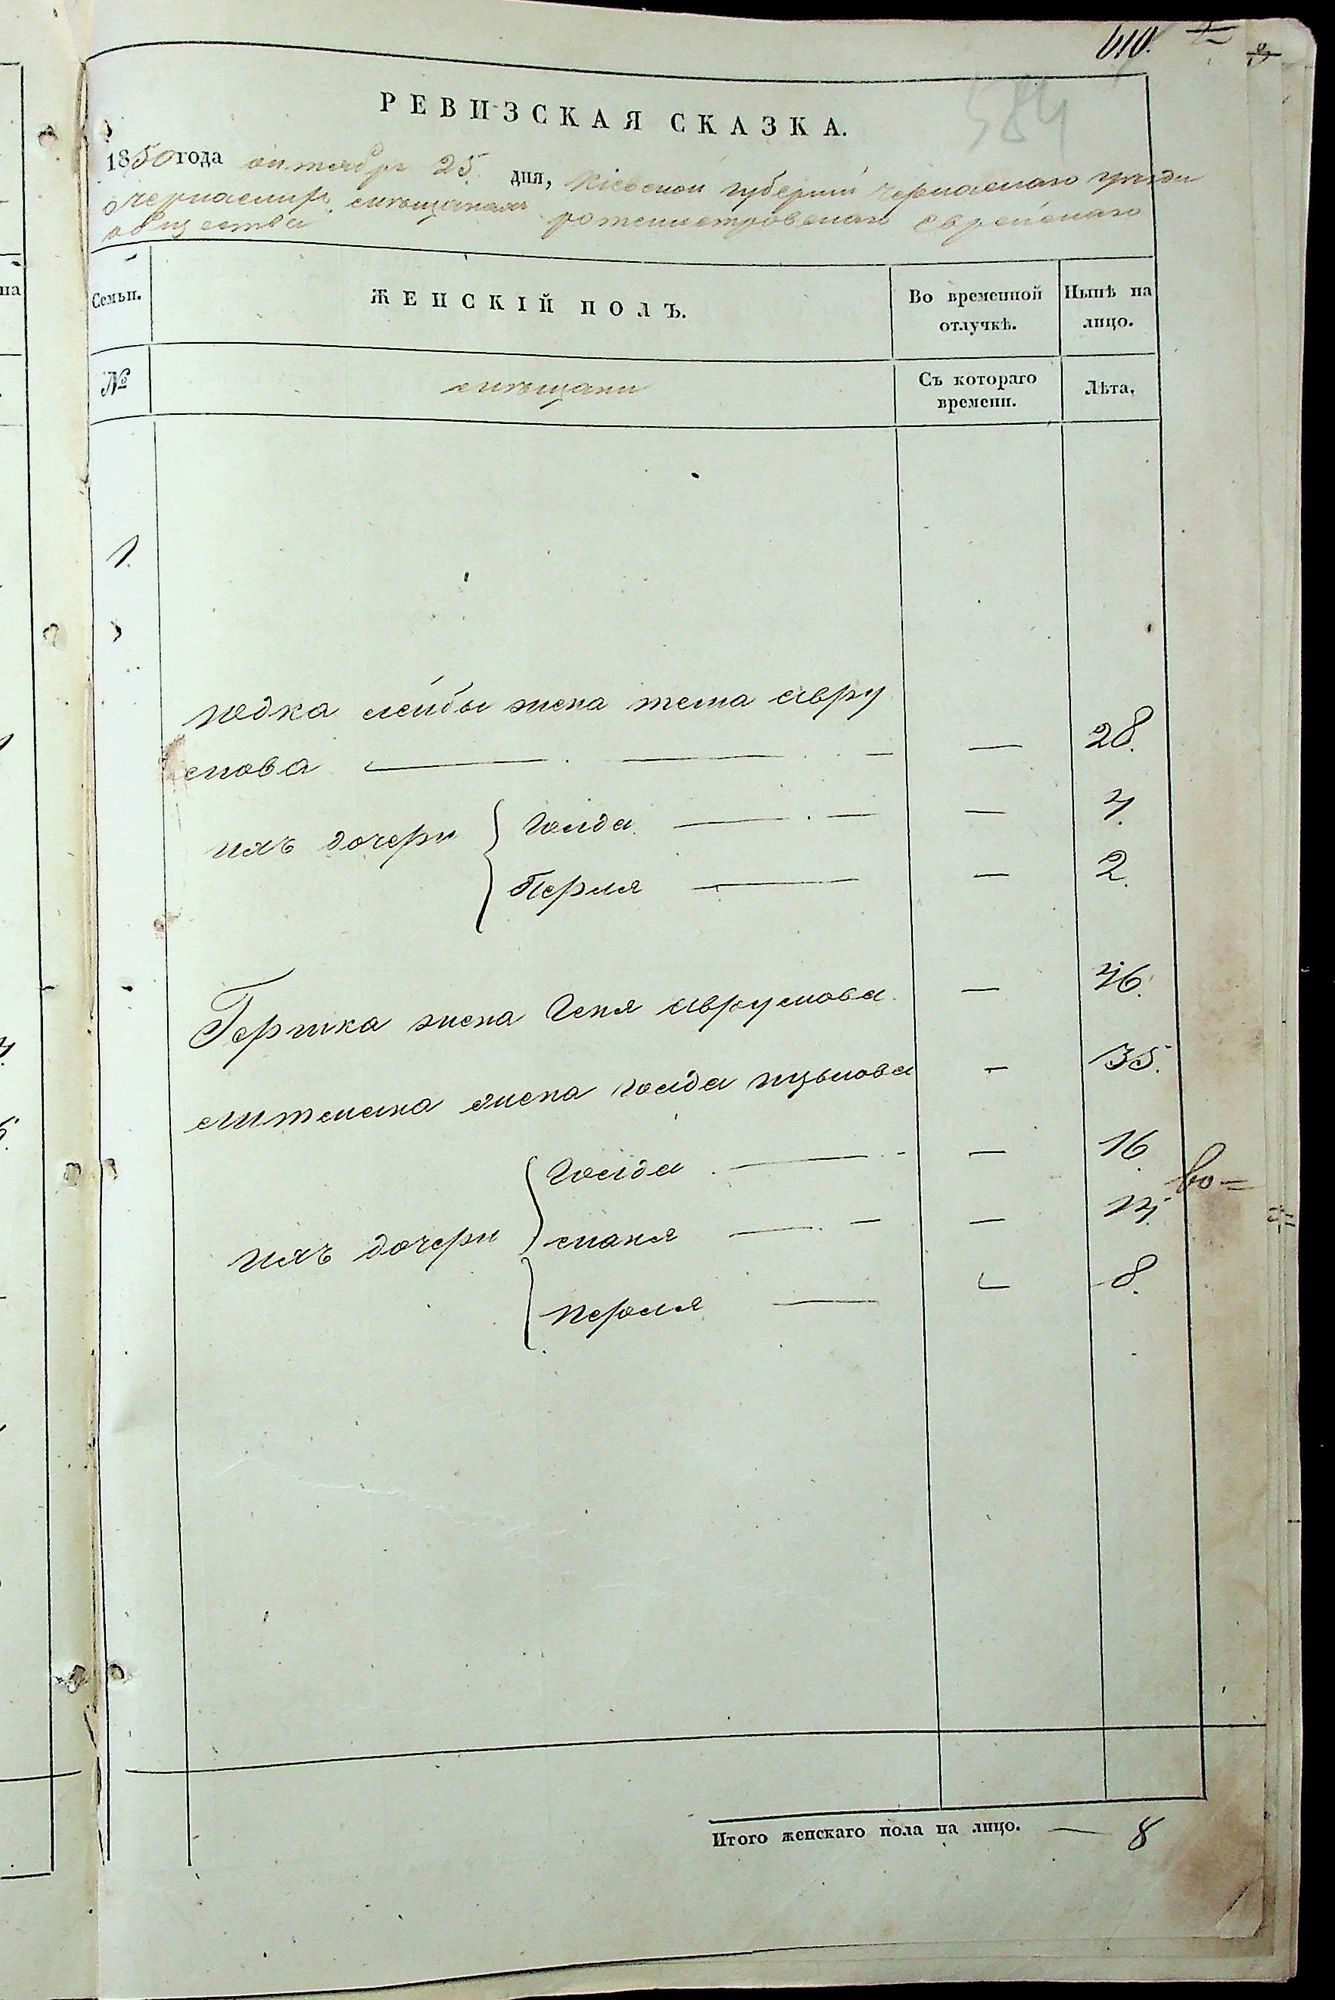 610.
584
РЕВИЗСКАЯ СКАЗКА.
1850 года октября 25 дня, Кіевской губерніи Черкаскаго уезда
о черкаскихъ мещанахъ ротмистровскаго еврейскаго
общества
Семьи.
ЖЕНСКІЙ ПОЛЪ.
Во временной отлучкѣ.
Нынѣ на лицо.
№
мещани
Съ котораго времени.
Лѣта.
1.
лейбы жена авру
мова — — — — 28.
ихъ дочери { Голда — — — 4.
Перля — — 2.
Гершка жена Геня аврумова — 46.
жена голда ицькова — 35.
Голда — — — 16
ихъ дочери — — —
перля — — 8.
во=
Итого женскаго пола на лицо. — 8